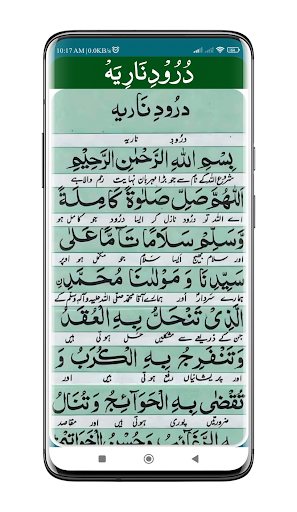 10:17 AM | 0.0KB/s
دُرُودِ نَارِيَهْ
درودِ نَاریه
درُود ناریہ
بِسْمِ اللهِ الرَّحْمٰنِ الرَّحِيْمِ
شروع اللہ کے نام سے جو بڑا مہربان نہایت رحم والا ہے
اَللّٰهُمَّ صَلِّ صَلٰوةً كَامِلَةً
اے اللہ تو درُود نازل کر ایسا درُود جو کامل ہو
وَّسَلِّمْ سَلَامًا تَآمًّا عَلٰى
اور سلام بھیج ایسا سلام جو مکمل ہو اوپر
سَيِّدِنَا وَ مَوْلٰنَا مُحَمَّدِنِ
ہمارے سردار اور ہمارے آقا محمد صلی اللہ علیہ وآلہ وسلم کے
الَّذِىْ تَنْحَلُّ بِهِ الْعُقَدُ
جن کے ذریعے سے مشکلیں حل ہوتی ہیں
وَتَنْفَرِجُ بِهِ الْكُرَبُ وَ
اور پریشانیاں رفع ہوتی ہیں اور
تُقْضٰى بِهِ الْحَوَآئِجُ وَتُنَالُ
ضرورتیں پوری ہوتی ہیں اور مقاصد
بِهِ الرَّغَآئِبُ وَحُسْنُ الْخَوَاتِيْمِ